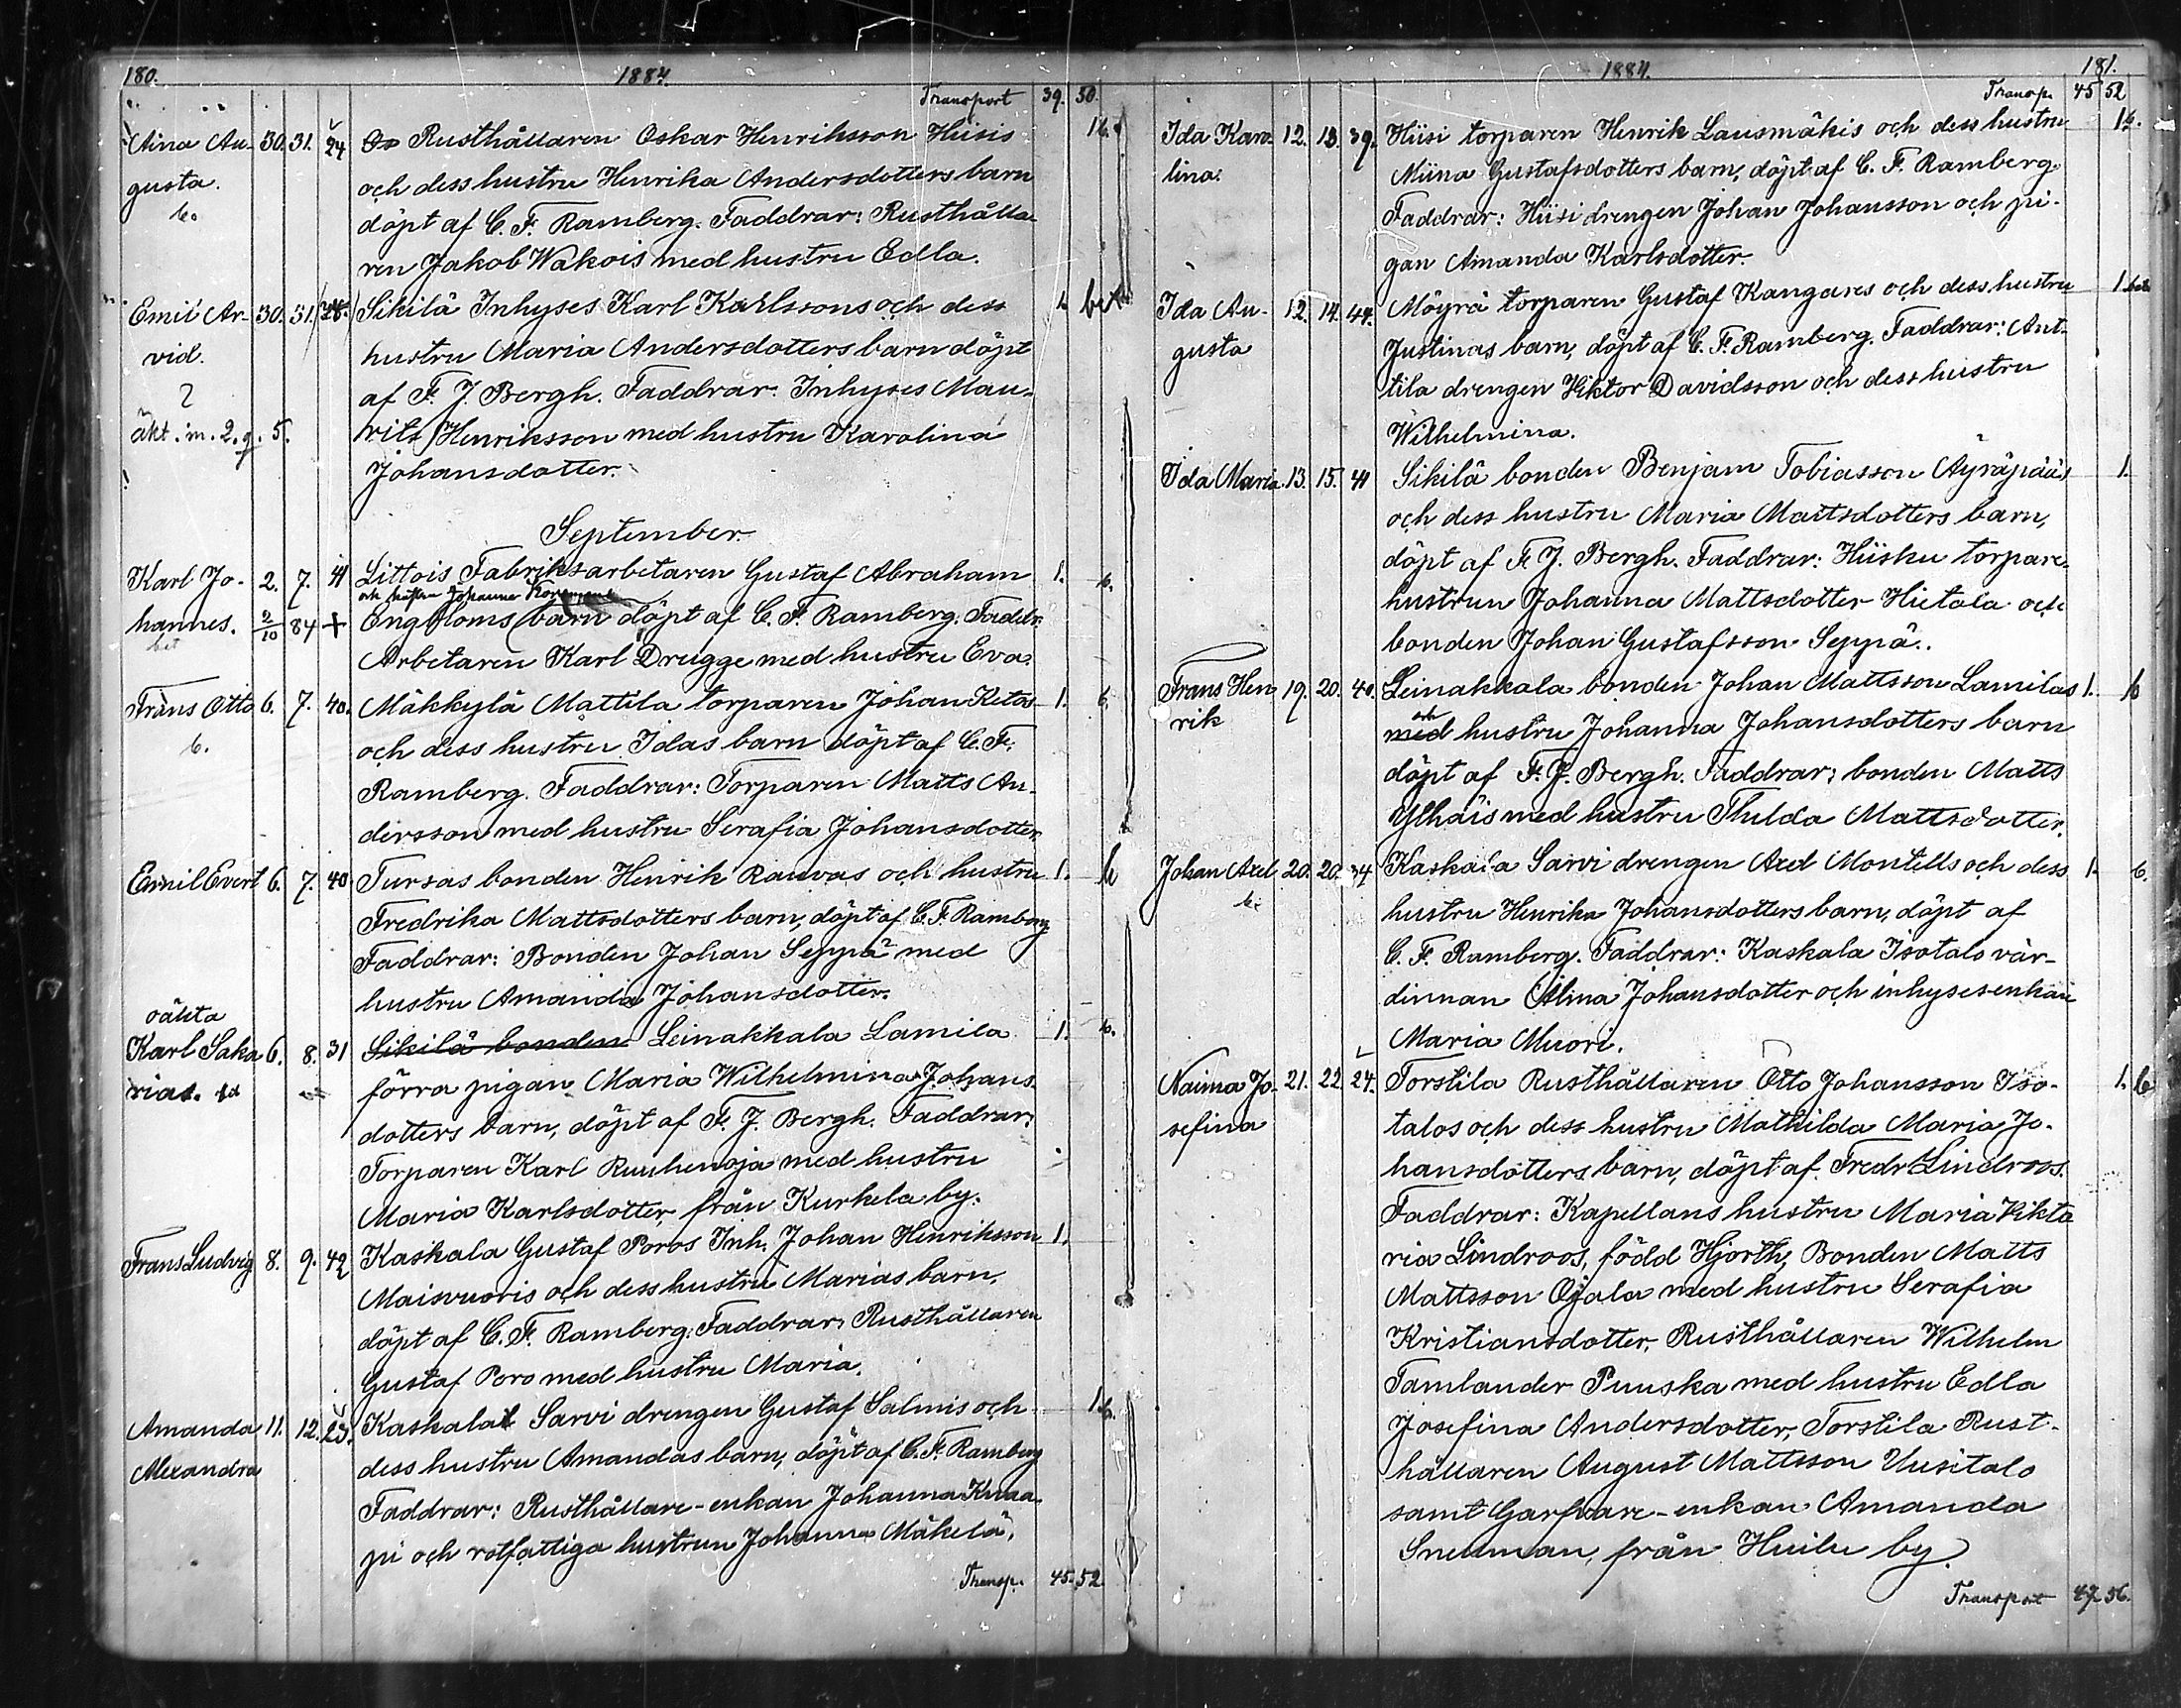 180. 1884.
Transport 39. 50.
Aina Au- 30. 31. 24 Rusthållaren Oskar Henriksson Hiisis 1 b.
gusta. och dess hustru Henrika Andersdotters barn
b. döpt af C. F. Ramberg. Faddrar: Rusthålla-
ren Jakob Wakois med hustru Edla.
Emil Ar- 30. 31. Sikilä Inhyses Karl Karlssons och dess 1. bet
vid. hustru Maria Andersdotters barn döpt
af F. J. Bergh. Faddrar: Inhyses Mau-
äkt. m. 2. g. 5. rits Henriksson med hustru Karolina
Johansdotter.
September.
Karl Jo- 2. 7. 41 Littois Fabriksarbetaren Gustaf Abraham 1. b.
och hustru Johanna
hannes. 2/10 84 + Engbloms barn döpt af C. F. Ramberg. Faddr.
bet Arbetaren Karl Drugge med hustru Eva.
Frans Otto 6. 7. 40. Mäkkylä Mattila torparen Johan Ketos 1. b.
b. och dess hustru Idas barn döpt af C. F.
Ramberg. Faddrar: Torparen Matts An-
dersson med hustru Serafia Johansdotter.
Emil Evert 6. 7. 40. Tursas bonden Henrik Rauvas och hustru 1. b
Fredrika Mattsdotters barn, döpt af C. F. Ramberg
Faddrar: Bonden Johan Seppä med
hustru Amanda Johansdotter.
oäkta
Karl Saka 6. 8. 31 Sikilä bonden Leinakkala Lamila 1. b.
rias. förra pigan Maria Wilhelmina Johans-
dotters barn, döpt af F. J. Bergh. Faddrar:
Torparen Karl Ruuhenoja med hustru
Maria Karlsdotter, från Kurkela by.
Frans Ludvig 8. 9. 42 Kaskala Gustaf Poros Inh. Johan Henriksson 1.
Maisvuoris och dess hustru Marias barn,
döpt af C. F. Ramberg. Faddrar: Rusthållaren
Gustaf Poro med hustru Maria.
Amanda 11. 12. 23. Kaskala Sarvi drengen Gustaf Salmis och 1 b.
Alexandra dess hustru Amandas barn, döpt af C. F. Ramberg
Faddrar: Rusthållare-enkan Johanna Knaa-
pi och rotfattiga hustrun Johanna Mäkelä.
Transp. 45. 52.
1884. 181.
Transp. 45 52
Ida Karo- 12. 13. 39. Hiisi torparen Henrik Lausmäkis och dess hustru 1 b.
lina. Miina Gustafsdotters barn, döpt af C. F. Ramberg.
Faddrar: Hiisi drengen Johan Johansson och pi-
gan Amanda Karlsdotter.
Ida Au- 12. 14. 44. Möyrä torparen Gustaf Kangares och dess hustru 1 bet
gusta Justinas barn, döpt af C. F. Ramberg. Faddrar: Ant-
tila drengen Viktor Davidsson och dess hustru
Wilhelmina.
Ida Maria 13. 15. 41 Sikilä bonden Benjam Tobiasson Äyräpääs 1.
och dess hustru Maria Mattsdotters barn,
döpt af F. J. Bergh. Faddrar: Hiisku torpare-
hustrun Johanna Mattsdotter Hietala och
bonden Johan Gustafsson Seppä.
Frans Hen 19. 20. 40. Leinakkala bonden Johan Mattsson Lamilas 1. b
och
rik med hustru Johanna Johansdotters barn
döpt af F. J. Bergh. Faddrar: bonden Matts
Ylhäis med hustru Thilda Mattsdotter.
Johan Axel 20. 20. 34 Kaskala Sarvi drengen Axel Montells och dess 1. b.
b. hustru Henrika Johansdotters barn, döpt af
C. F. Ramberg. Faddrar: Kaskala Isotalo vär-
dinnan Alina Johansdotter och inhysesenkan
Maria Muori.
Naima Jo- 21. 22. 24. Torstila Rusthållaren Otto Johansson Iso- 1. b
sefina talos och dess hustru Mathilda Maria Jo-
hansdotters barn, döpt af Fredr Lindroos.
Faddrar: Kapellans hustru Maria Vikto
ria Lindroos, född Hjorth, Bonden Matts
Mattsson Ojala med hustru Serafia
Kristiansdotter, Rusthållaren Wilhelm
Tamlander Puuska med hustru Edla
Josefina Andersdotter, Torstila Rust-
hållaren August Mattsson Uusitalo
samt Garfvare-enkan Amanda
Snellman, från Huilu by.
Transport 47 56.